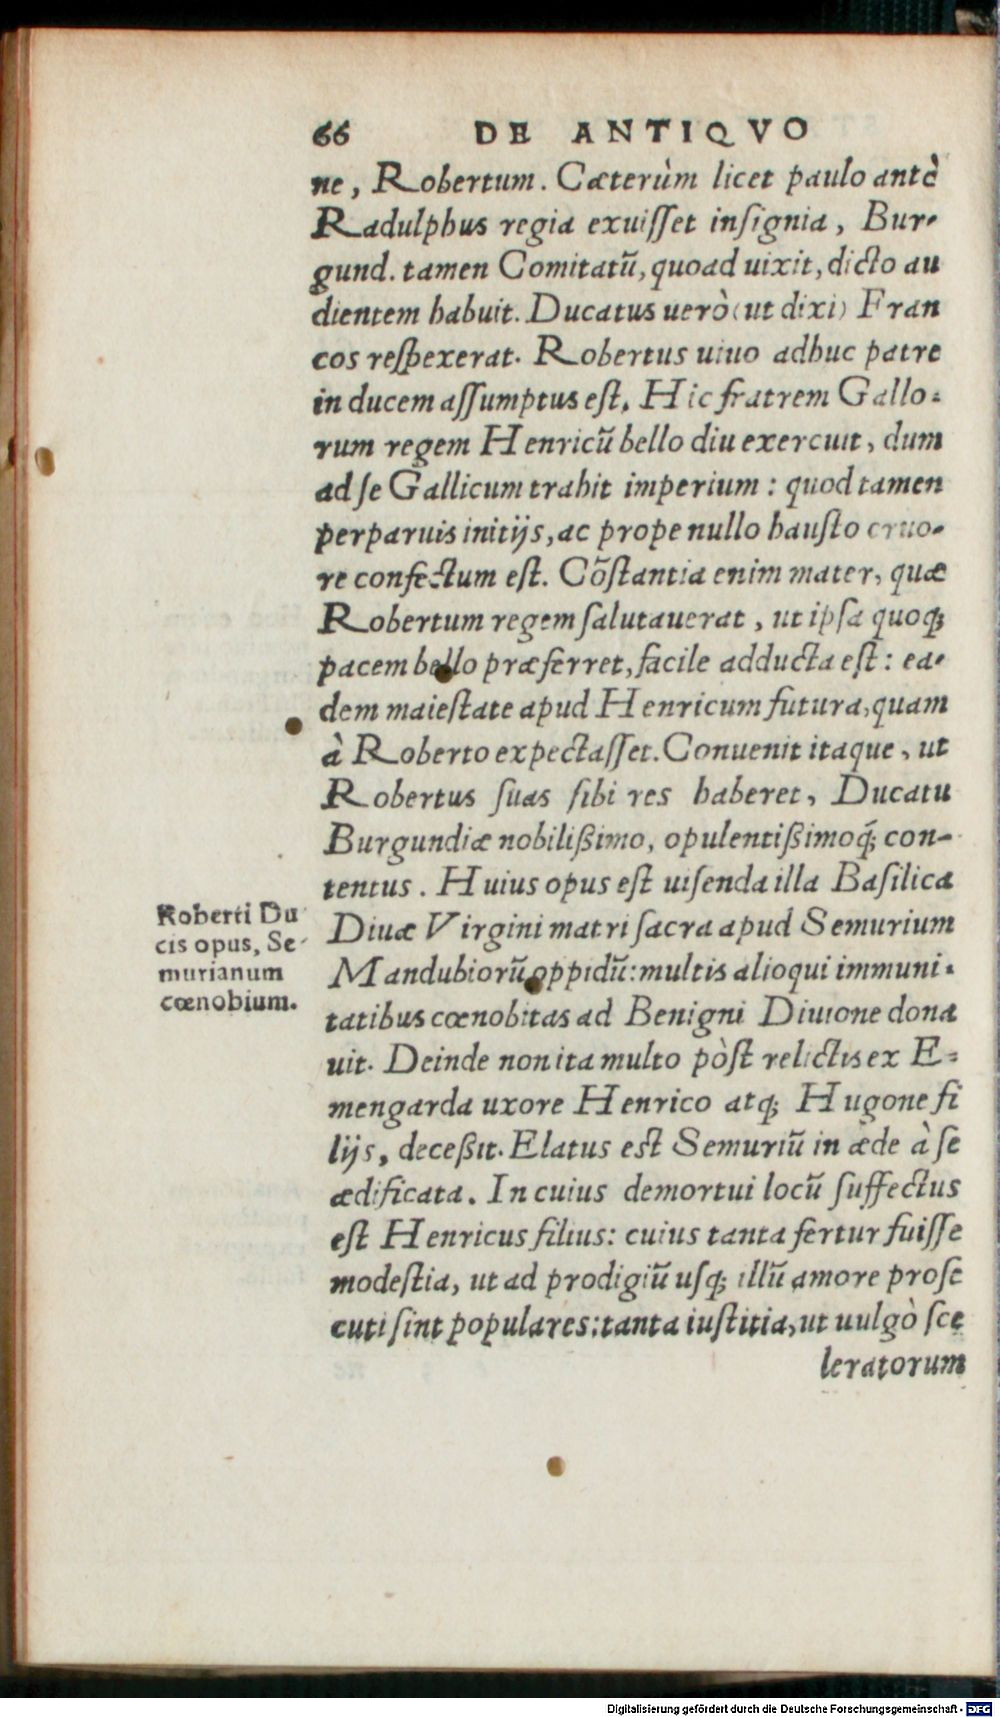 66 DE ANTIQVO
ne, Robertum. Cæterùm licet paulo antè
Radulphus regia exuisset insignia, Bur-
gund. tamen Comitatū, quoad uixit, dicto au
dientem habuit. Ducatus uerò (ut dixi) Fran
cos respexerat. Robertus uiuo adhuc patre
in ducem assumptus est. Hic fratrem Gallo-
rum regem Henricū bello diu exercuit, dum
ad se Gallicum trahit imperium: quod tamen
perparuis initijs, ac prope nullo hausto cruo-
re confectum est. Cōstantia enim mater, quæ
Robertum regem salutauerat, ut ipsa quoq;
pacem bello præferret, facile adducta est: ea-
dem maiestate apud Henricum futura, quam
à Roberto expectasset. Conuenit itaque, ut
Robertus suas sibi res haberet, Ducatu
Burgundiæ nobilißimo, opulentißimoq́; con-
tentus. Huius opus est uisenda illa Basilica
Diuæ Virgini matri sacra apud Semurium
Mandubiorū oppidū: multis alioqui immuni-
tatibus cœnobitas ad Benigni Diuione dona
uit. Deinde non ita multo pòst relictis ex E-
mengarda uxore Henrico atq; Hugone fi
lijs, deceßit. Elatus est Semuriū in æde à se
ædificata. In cuius demortui locū suffectus
est Henricus filius: cuius tanta fertur fuisse
modestia, ut ad prodigiū usq; illū amore prose
cuti sint populares: tanta iustitia, ut uulgò sce
leratorum
Roberti Du
cis opus, Se-
murianum
cœnobium.
Digitalisierung gefördert durch die Deutsche Forschungsgemeinschaft - DFG